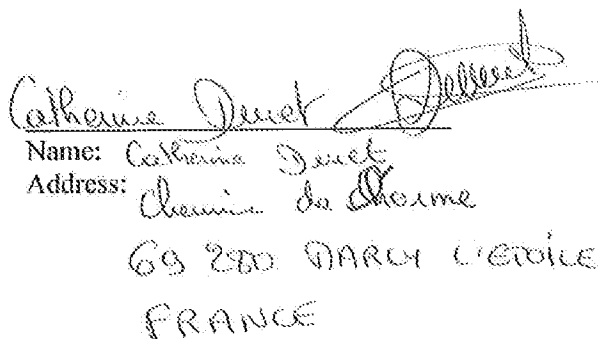 Catherine Duret
Name: Catherine Duret
Address:
Chemin de Lorme
69 280 MARCY L'ETOILE
FRANCE